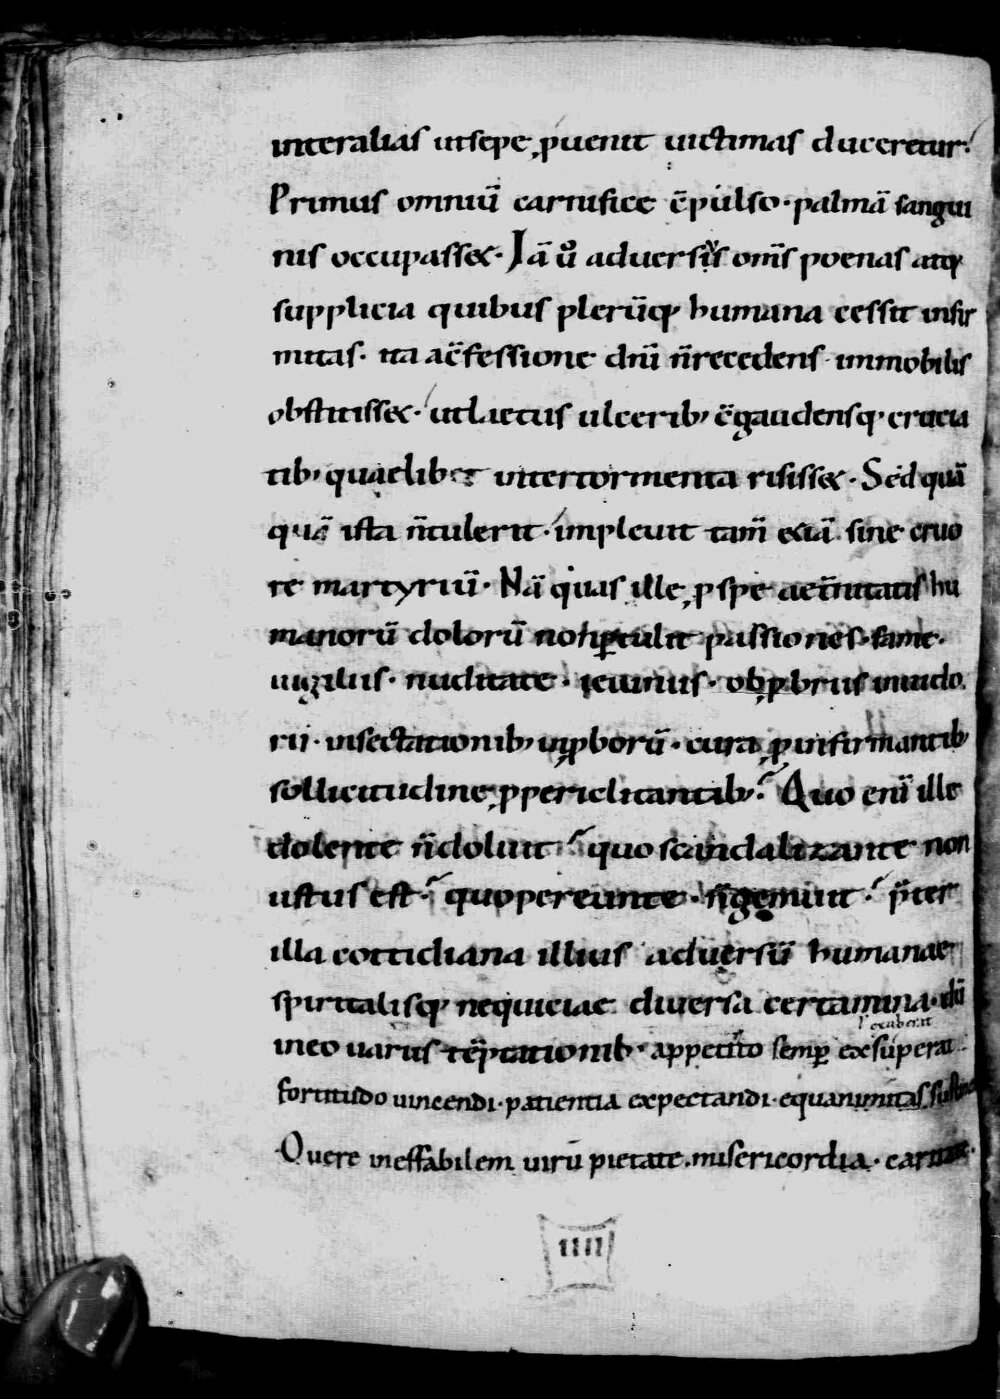 interalias utsepe ꝓuenit uictimas duceretur.
Primus omniū carnifice c̄pulso · palmā sangui
nis occupasset · Iā u͛o aduersus om̄s poenas atq;
supplicia quibus plerūq; humana cessit infir
mitas · ita ac̄fessione dn̄i n̄recedens immobilis
obstitisset · utlaetus ulcerib; c̄gaudensq; crucia
tib; quaelibet intertormenta risisset · Sed quā
quā ista n̄tulerit · impleuit tam̄ etiā sine cruo
re martyriū · Nā quas ille ꝓ spe aet̄nitatis hu
manorū dolorū nonꝑtulit passiones · fame ·
uigiliis · nuditate · ieiuniis · obꝓbriis inuido
rū · insectationib; inꝓborū · cura ꝓ infirmantib;
sollicitudine ꝓ periclitantib; · Quo enī ille
dolente n̄doluit · quo scandalizante non
ustus est · quo pereunte · n̄gemuit · p̄ter
illa cottidiana illius aduersū humanae
spiritalisq; nequiciae diuersa certamina · dū
l' exuberat
ineo uariis tēptationib; · appetito semꝑ exsuperat
fortitudo uincendi · patientia expectandi · equanimitas
O uere ineffabilem uirū pietate · misericordia · caritate ·
IIII